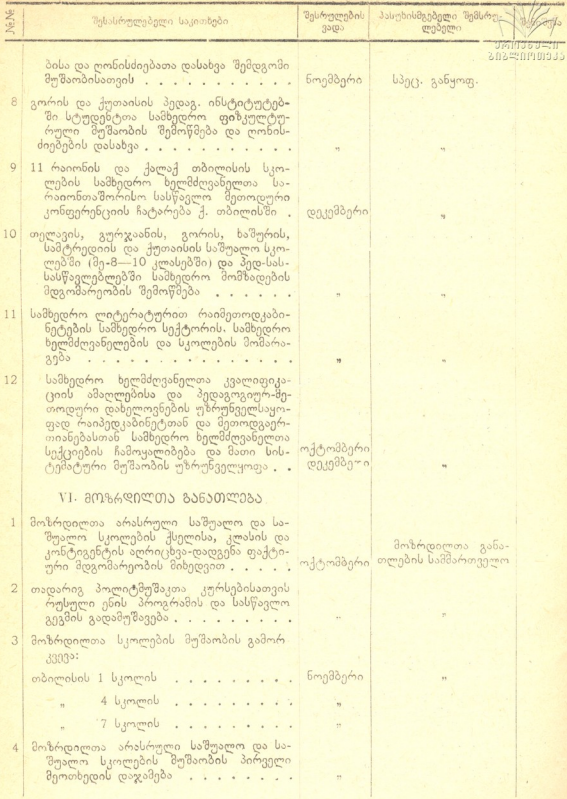 №№ შესასრულებელი საკითხები შესრულების ვადა პასუხისმგებელი შემსრულებელი
ეროვნული ბიბლიოთეკა
ბისა და ღონისძიებათა დასახვა შემდგომი
მუშაობისათვის . . . . . . . . . . ნოემბერი სპეც. განყოფ.
8 გორის და ქუთაისის პედაგ. ინსტიტუტებ-
ში სტუდენტთა სამხედრო ფიზკულტუ-
რული მუშაობის შემოწმება და ღონის-
ძიებების დასახვა . . . . . . . . . . „ „
9 11 რაიონის და ქალაქ თბილისის სკო-
ლების სამხედრო ხელმძღვანელთა სა-
რაიონთაშორისო სასწავლო მეთოდური
კონფერენციის ჩატარება ქ. თბილისში . დეკემბერი „
10 თელავის, გურჯაანის, გორის, ხაშურის,
სამტრედიის და ქუთაისის საშუალო სკო-
ლებში (მე-8—10 კლასებში) და პედ-სას-
სასწავლებლებში სამხედრო მომზადების
მდგომარეობის შემოწმება . . . . . . „ „
11 სამხედრო ლიტერატურით რაიმეთოდკაბი-
ნეტების სამხედრო სექტორის, სამხედრო
ხელმძღვანელების და სკოლების მომარა-
გება . . . . . . . . . . . . . . . „ „
12 სამხედრო ხელმძღვანელთა კვალიფიკა-
ციის ამაღლებისა და პედაგოგიურ-მე-
თოდური დახელოვნების უზრუნველსაყო-
ფად რაიპედკაბინეტთან და მეთოდგაერ-
თიანებასთან სამხედრო ხელმძღვანელთა
სექციების ჩამოყალიბება და მათი სის- ოქტომბერი
ტემატური მუშაობის უზრუნველყოფა . . დეკემბერი „
VI. მოზრდილთა განათლება
1 მოზრდილთა არასრული საშუალო და სა-
შუალო სკოლების ქსელისა, კლასის და
კონტიგენტის აღრიცხვა-დადგენა ფაქტი-
ური მდგომარეობის მიხედვით . . . . . ოქტომბერი მოზრდილთა განა-
თლების სამმართველო
2 თადარიგ პოლიტმუშაკთა კურსებისათვის
რუსული ენის პროგრამის და სასწავლო
გეგმის გადამუშავება . . . . . . . . „ „
3 მოზრდილთა სკოლების მუშაობის გამორ
კვევა:
თბილისის 1 სკოლის . . . . . . . . ნოემბერი „
„ 4 სკოლის . . . . . . . . „ „
„ 7 სკოლის . . . . . . . . „ „
4 მოზრდილთა არასრული საშუალო და სა-
შუალო სკოლების მუშაობის პირველი
მეოთხედის დაჯამება . . . . . . . . „